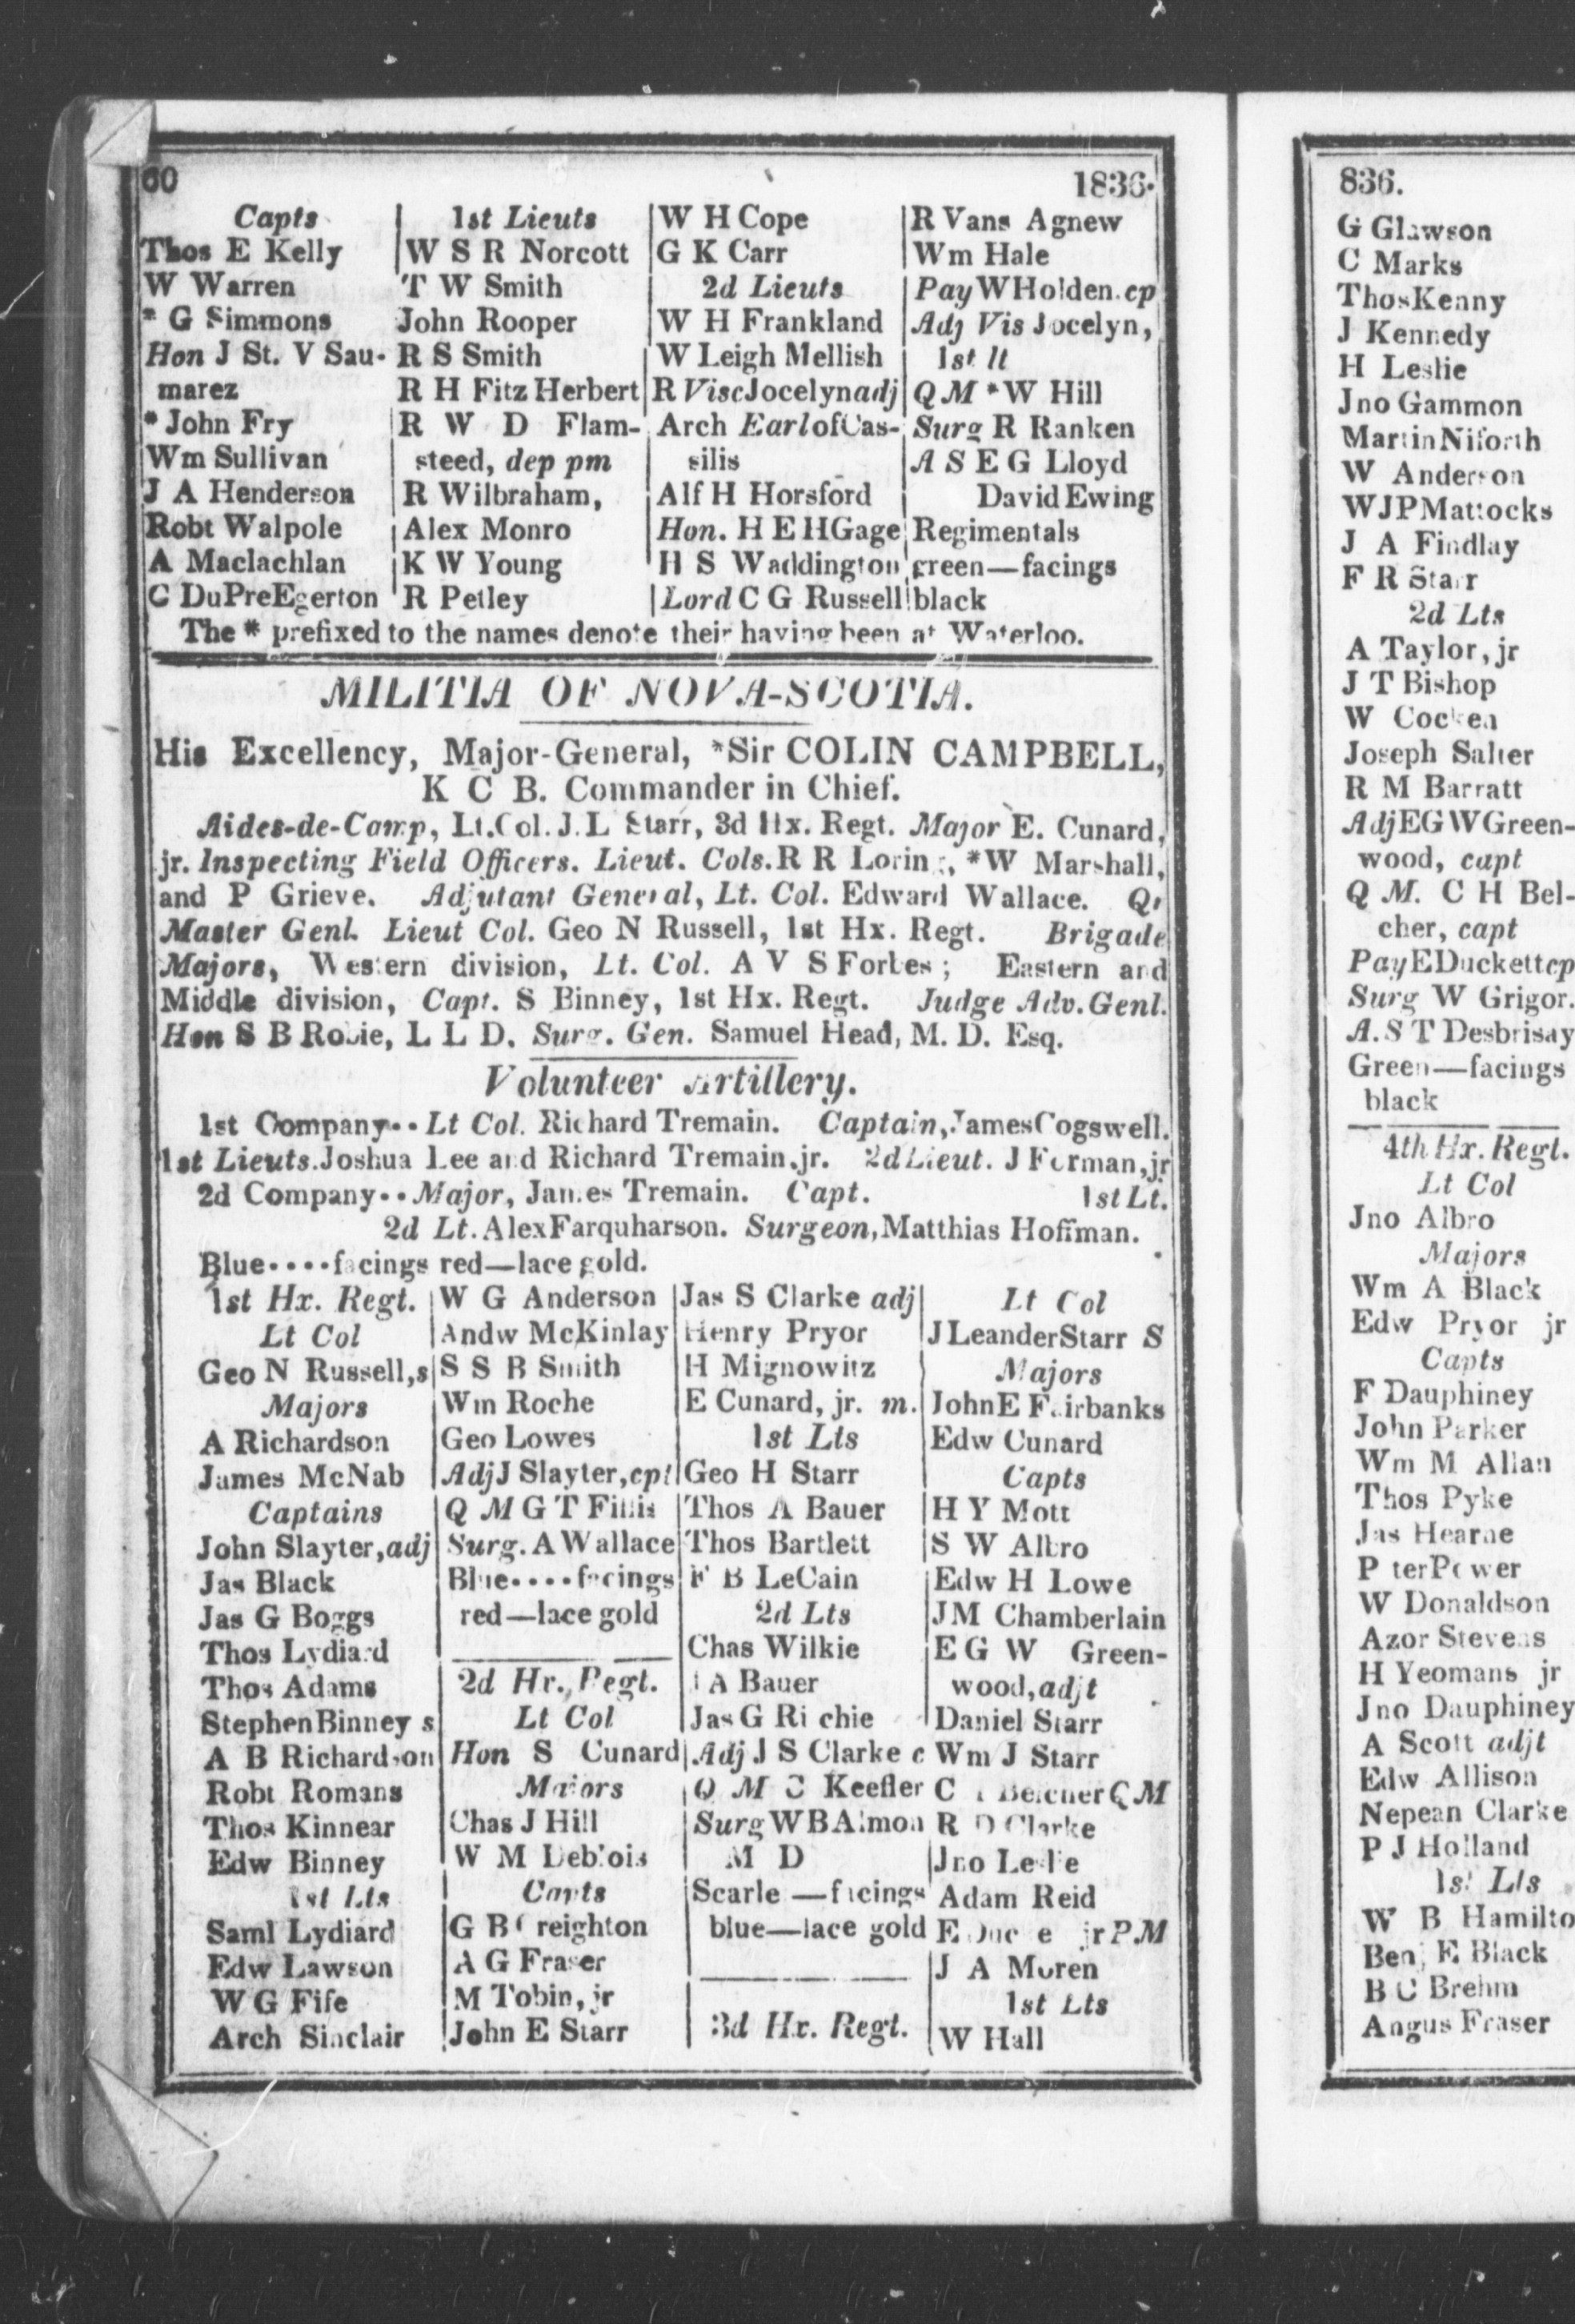 60
1836.
Capts
Thos E Kelly
W Warren
* G Simmons
Hon J St. V Sau-
marez
* John Fry
Wm Sullivan
J A Henderson
Robt Walpole
A Maclachlan
C DuPreEgerton
1st Lieuts
W S R Norcott
T W Smith
John Rooper
R S Smith
R H Fitz Herbert
R W D Flam-
steed, dep pm
R Wilbraham,
Alex Monro
K W Young
R Petley
W H Cope
G K Carr
2d Lieuts
W H Frankland
W Leigh Mellish
R Visc Jocelyn adj
Arch Earl of Cas-
silis
Alf H Horsford
Hon. H E H Gage
H S Waddington
Lord C G Russell
R Vans Agnew
Wm Hale
Pay W Holden. cp
Adj Vis Jocelyn,
1st lt
Q M * W Hill
Surg R Ranken
A S E G Lloyd
David Ewing
Regimentals
green—facings
black
The * prefixed to the names denote their having been at Waterloo.
MILITIA OF NOVA-SCOTIA.
His Excellency, Major-General, *Sir COLIN CAMPBELL,
K C B. Commander in Chief.
Aides-de-Camp, Lt. Col. J. L Starr, 3d Hx. Regt. Major E. Cunard,
jr. Inspecting Field Officers. Lieut. Cols. R R Loring, *W Marshall,
and P Grieve. Adjutant General, Lt. Col. Edward Wallace. Qr
Master Genl. Lieut Col. Geo N Russell, 1st Hx. Regt. Brigade
Majors, Western division, Lt. Col. A V S Forbes; Eastern and
Middle division, Capt. S Binney, 1st Hx. Regt. Judge Adv. Genl.
Hon S B Robie, L L D. Surg. Gen. Samuel Head, M. D. Esq.
Volunteer Artillery.
1st Company.. Lt Col. Richard Tremain. Captain, James Cogswell.
1st Lieuts. Joshua Lee and Richard Tremain, jr. 2d Lieut. J Forman, jr
2d Company.. Major, James Tremain. Capt. 1st Lt.
2d Lt. Alex Farquharson. Surgeon, Matthias Hoffman.
Blue....facings red—lace gold.
1st Hx. Regt.
Lt Col
Geo N Russell, s
Majors
A Richardson
James McNab
Captains
John Slayter, adj
Jas Black
Jas G Boggs
Thos Lydiard
Thos Adams
Stephen Binney s
A B Richardson
Robt Romans
Thos Kinnear
Edw Binney
1st Lts
Saml Lydiard
Edw Lawson
W G Fife
Arch Sinclair
W G Anderson
Andw McKinlay
S S B Smith
Wm Roche
Geo Lowes
Adj J Slayter, cpt
Q M G T Fillis
Surg. A Wallace
Blue....facings
red—lace gold
2d Hx. Regt.
Lt Col
Hon S Cunard
Majors
Chas J Hill
W M Deblois
Capts
G B Creighton
A G Fraser
M Tobin, jr
John E Starr
Jas S Clarke adj
Henry Pryor
H Mignowitz
E Cunard, jr. m.
1st Lts
Geo H Starr
Thos A Bauer
Thos Bartlett
F B LeCain
2d Lts
Chas Wilkie
A Bauer
Jas G Ritchie
Adj J S Clarke c
Q M C Keefler
Surg W B Almon
M D
Scarlet—facings
blue—lace gold
3d Hx. Regt.
Lt Col
J Leander Starr S
Majors
John E Fairbanks
Edw Cunard
Capts
H Y Mott
S W Albro
Edw H Lowe
J M Chamberlain
E G W Green-
wood, adjt
Daniel Starr
Wm J Starr
C Belcher Q M
R D Clarke
Jno Leslie
Adam Reid
E jr P M
J A Moren
1st Lts
W Hall
836.
G Glawson
C Marks
Thos Kenny
J Kennedy
H Leslie
Jno Gammon
Martin Niforth
W Anderson
W J P Mattocks
J A Findlay
F R Starr
2d Lts
A Taylor, jr
J T Bishop
W Cocken
Joseph Salter
R M Barratt
Adj E G W Green-
wood, capt
Q M. C H Bel-
cher, capt
Pay E Duckett cp
Surg W Grigor.
A. S T Desbrisay
Green—facings
black
4th Hx. Regt.
Lt Col
Jno Albro
Majors
Wm A Black
Edw Pryor jr
Capts
F Dauphiney
John Parker
Wm M Allan
Thos Pyke
Jas Hearne
Peter Power
W Donaldson
Azor Stevens
H Yeomans jr
Jno Dauphiney
A Scott adjt
Edw Allison
Nepean Clarke
P J Holland
1st Lts
W B Hamilto
Benj E Black
B C Brehm
Angus Fraser